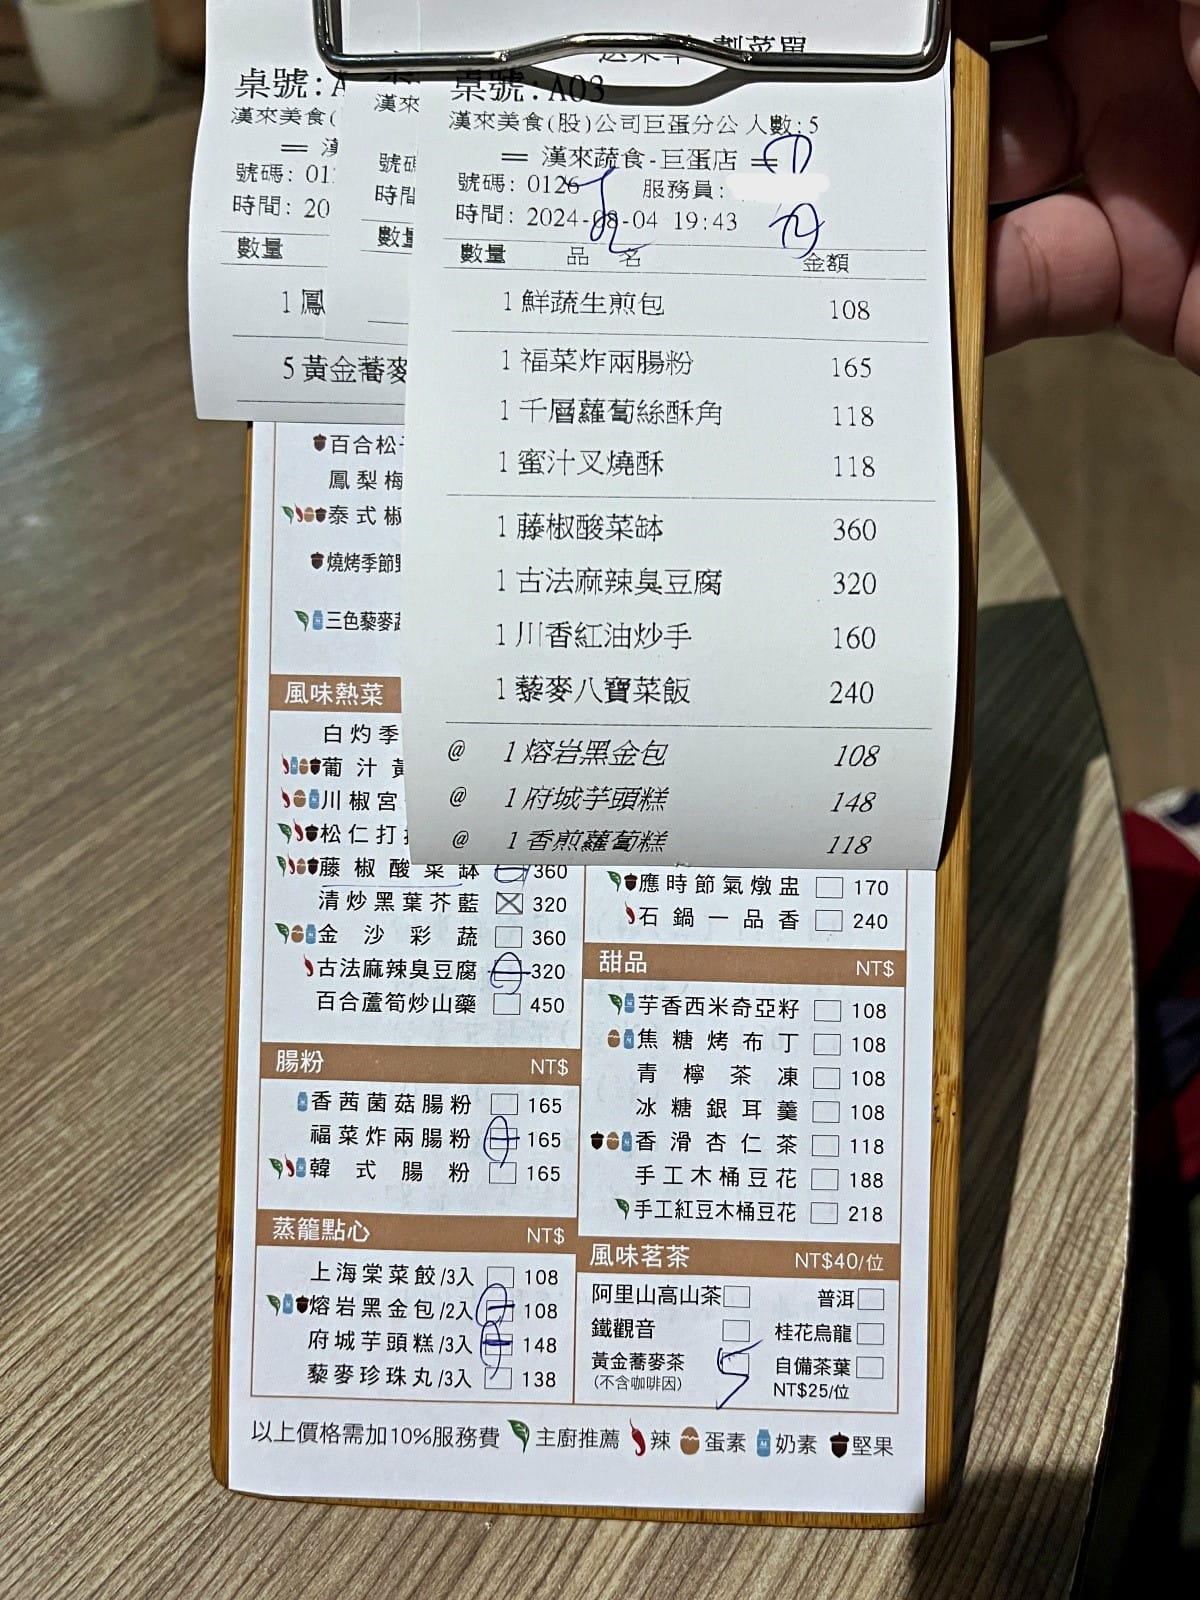 桌號: A03
漢來美食(股)公司巨蛋分公 人數: 5
漢來蔬食-巨蛋店
號碼: 0126 服務員:
時間: 2024-08-04 19:43
數量 品 名 金額
1 鮮蔬生煎包 108
1 福菜炸兩腸粉 165
1 千層蘿蔔絲酥角 118
1 蜜汁叉燒酥 118
1 藤椒酸菜缽 360
1 古法麻辣臭豆腐 320
1 川香紅油炒手 160
1 藜麥八寶菜飯 240
@ 1 熔岩黑金包 108
@ 1 府城芋頭糕 148
@ 1 香煎蘿蔔糕 118
桌號:
漢來美食(
號碼: 01
時間: 20
數量
1 鳳
5 黃金蕎麥
漢來
號碼
時間
數量
百合松
鳳梨梅
泰式椒
燒烤季節
三色藜麥
風味熱菜
白灼季
葡汁
川椒宮
松仁打
藤椒酸菜缽 360
清炒黑葉芥藍 320
金沙彩蔬 360
古法麻辣臭豆腐 320
百合蘆筍炒山藥 450
腸粉 NT$
香茜菌菇腸粉 165
福菜炸兩腸粉 165
韓式腸粉 165
蒸籠點心 NT$
上海棠菜餃/3入 108
熔岩黑金包/2入 108
府城芋頭糕/3入 148
藜麥珍珠丸/3入 138
應時節氣燉盅 170
石鍋一品香 240
甜品 NT$
芋香西米奇亞籽 108
焦糖烤布丁 108
青檸茶凍 108
冰糖銀耳羹 108
香滑杏仁茶 118
手工木桶豆花 188
手工紅豆木桶豆花 218
風味茗茶 NT$40/位
阿里山高山茶 普洱
鐵觀音 桂花烏龍
黃金蕎麥茶 5 自備茶葉
(不含咖啡因) NT$25/位
以上價格需加10%服務費 主廚推薦 辣 蛋素 奶素 堅果